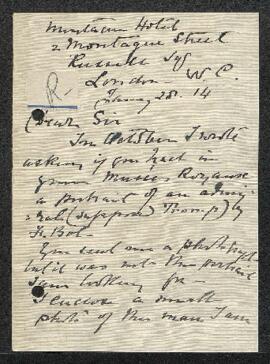 Montague Hotel
2 Montague Street
Russell Sq
London W C.
R-
28. 14
Dear Sir
In October I wrote
asking if you had in
your Musée Royause
a portrait of an admi-
ral (supposed Tromp) by
F. Bol-
You sent me a photograph
but it was not the portrait
I am looking for-
I enclose a small
photo of the man I am